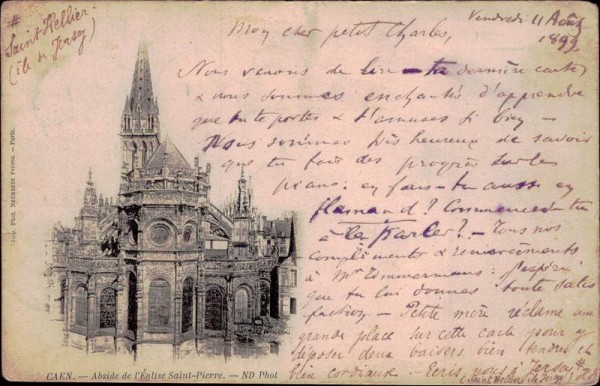 #
Saint Hellier.
(île de Jersey)
Vendredi 11 Août
1899
Mon cher petit Charles,
Nous venons de lire ta dernière carte
& nous sommes enchantés d'apprendre
que tu te portes & t'amuses si bien –
Nous sommes très heureux de savoir
que tu fais des progrès sur le
piano: en fais-tu aussi en
flamand? Commences-tu
à le parler? – Tous nos
compliments & remerciements
à Mr Zimmermann: j'espère
que tu lui donnes toute satis
faction – Petite mère réclame une
grande place sur cette carte pour y
déposer deux baisers bien tendres et
bien cordiaux – Ecris nous à Jersey
Saint Hellier
Imp. Phot. NEURDEIN Frères. — Paris.
CAEN. — Abside de l'Église Saint-Pierre. — ND Phot